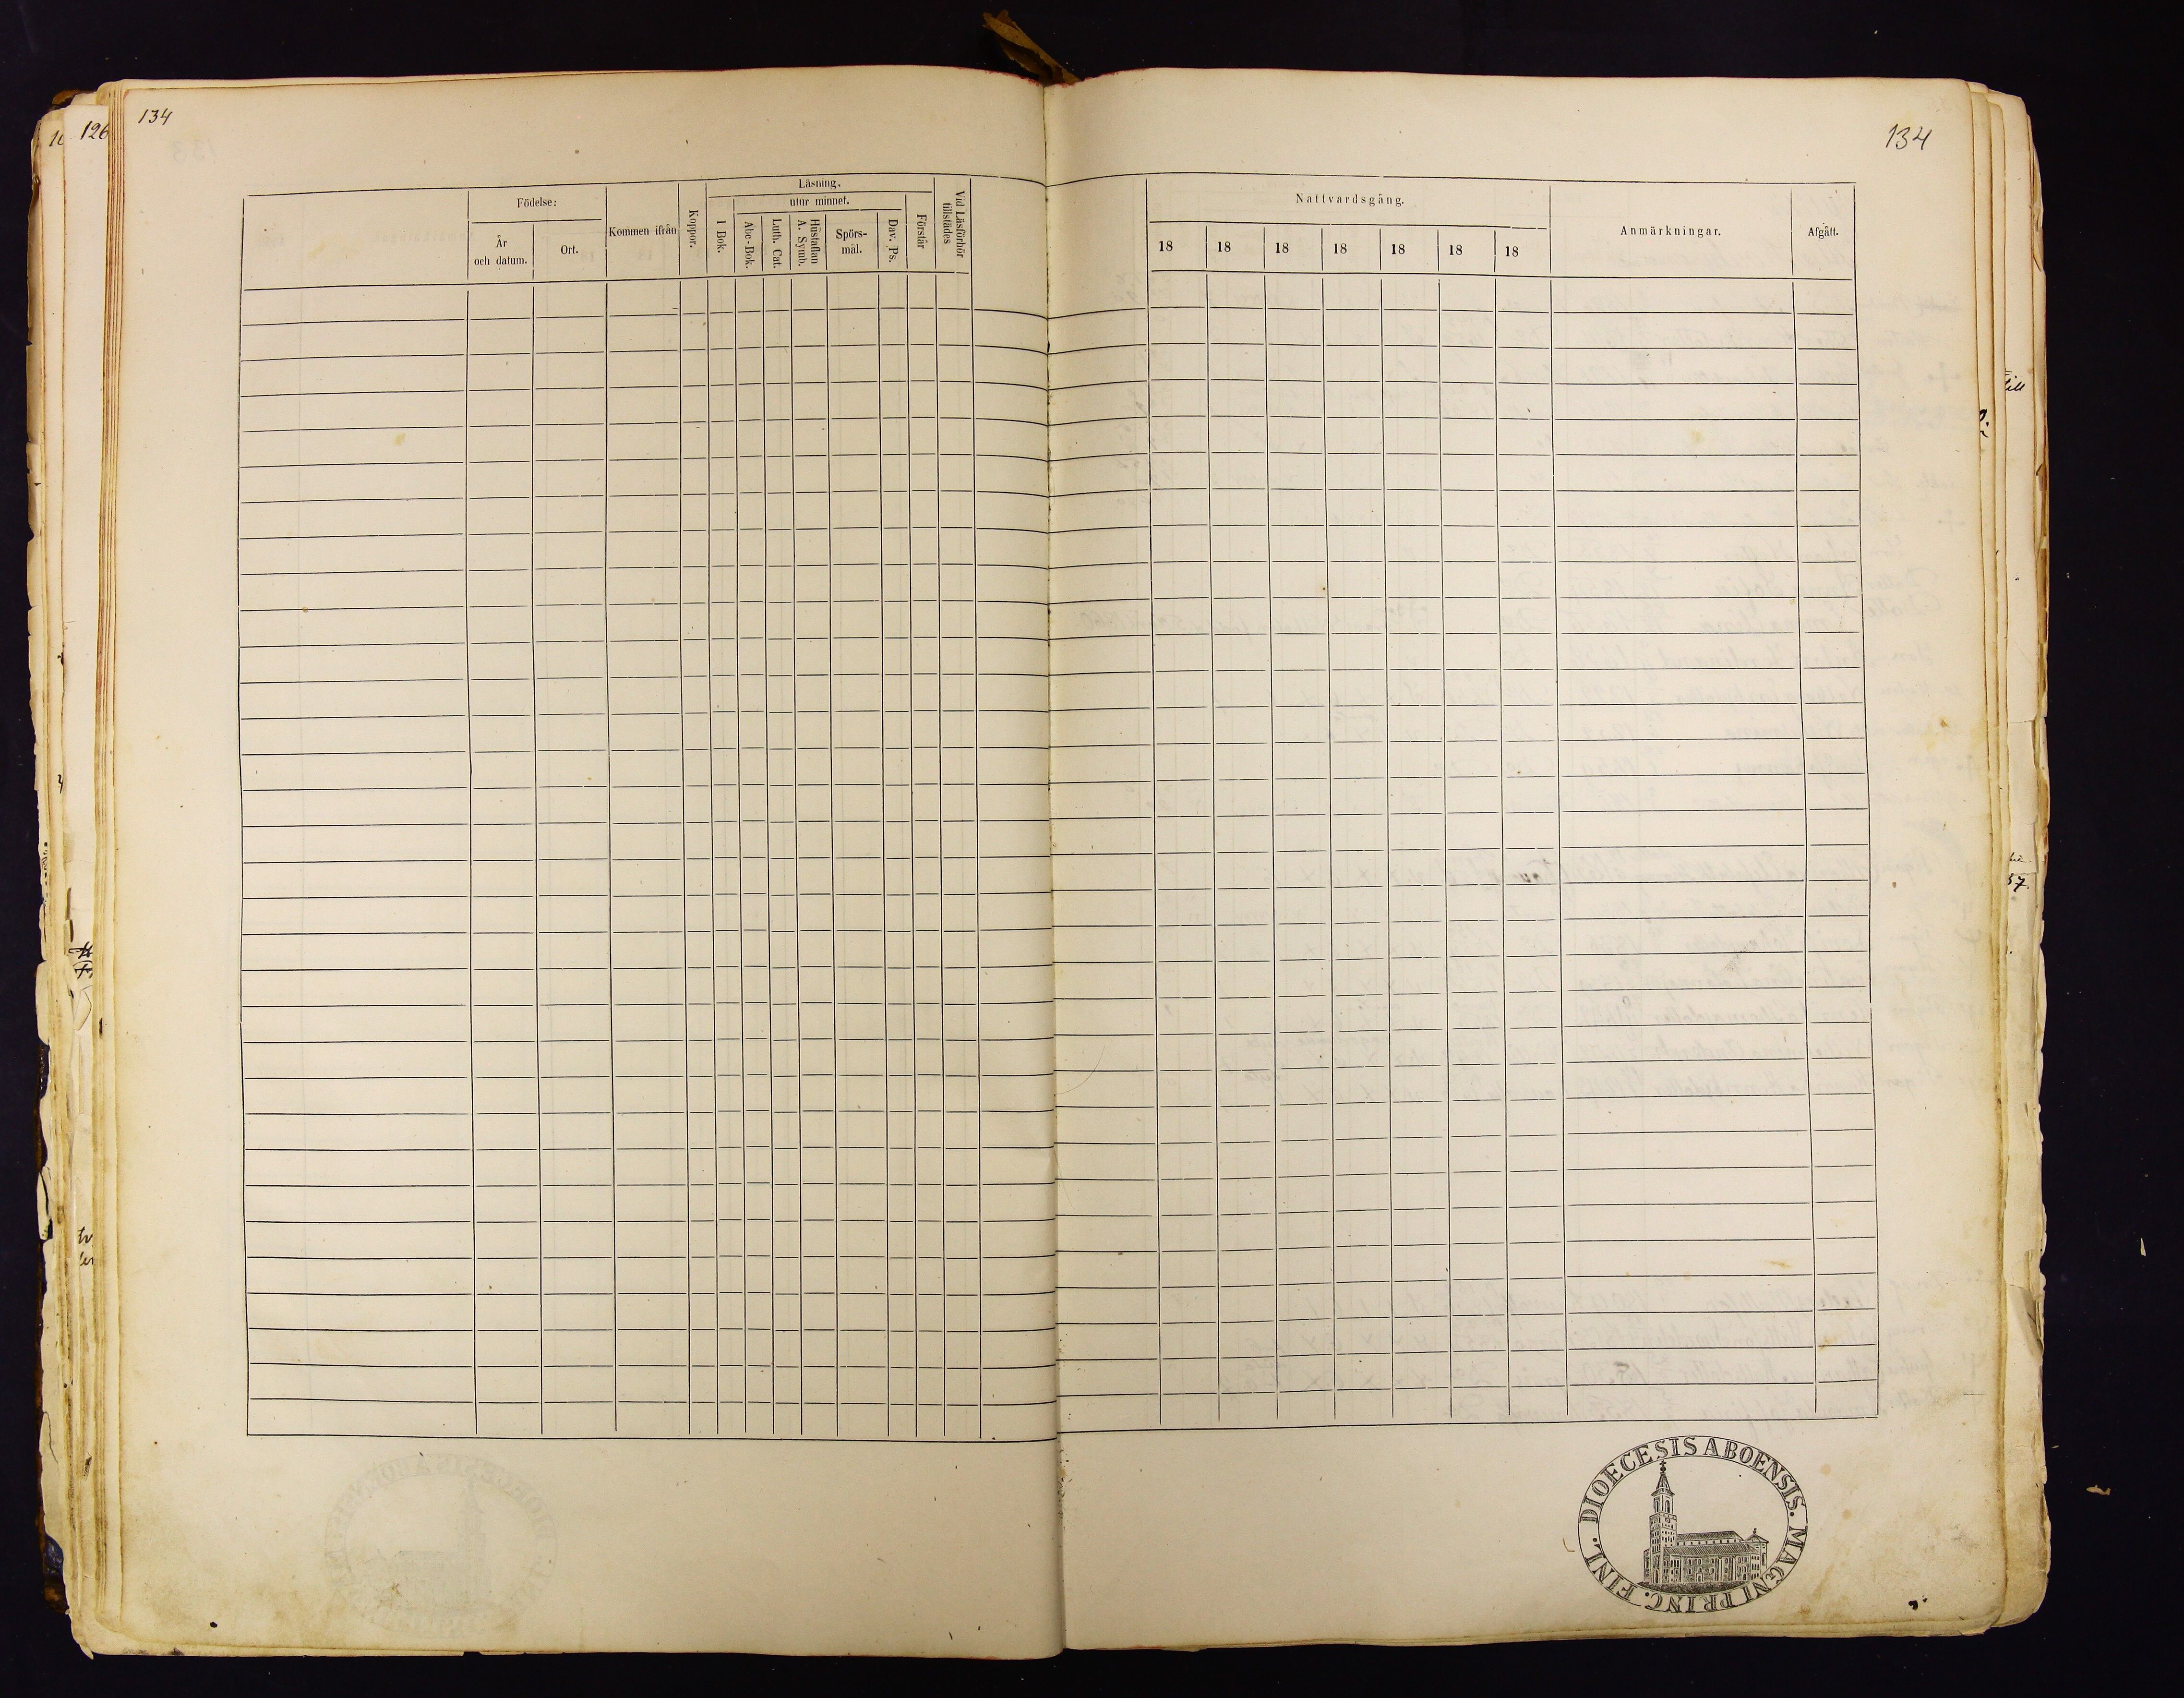 134
126
134
Födelse:
År
och datum.
Ort.
Kommen ifrån
Koppor.
Läsning.
utur minnet.
I Bok.
Abc-Bok.
Luth. Cat.
Hustaflan
A. Symb.
Spörs-
mål.
Dav. Ps.
Förstår
Vid Läsförhör
tillstädes
Nattvardsgång.
18 18 18 18 18 18 18
Anmärkningar.
Afgått.
till
57.
DIOECESIS ABOENSIS. MAGNI PRINC. FINL.